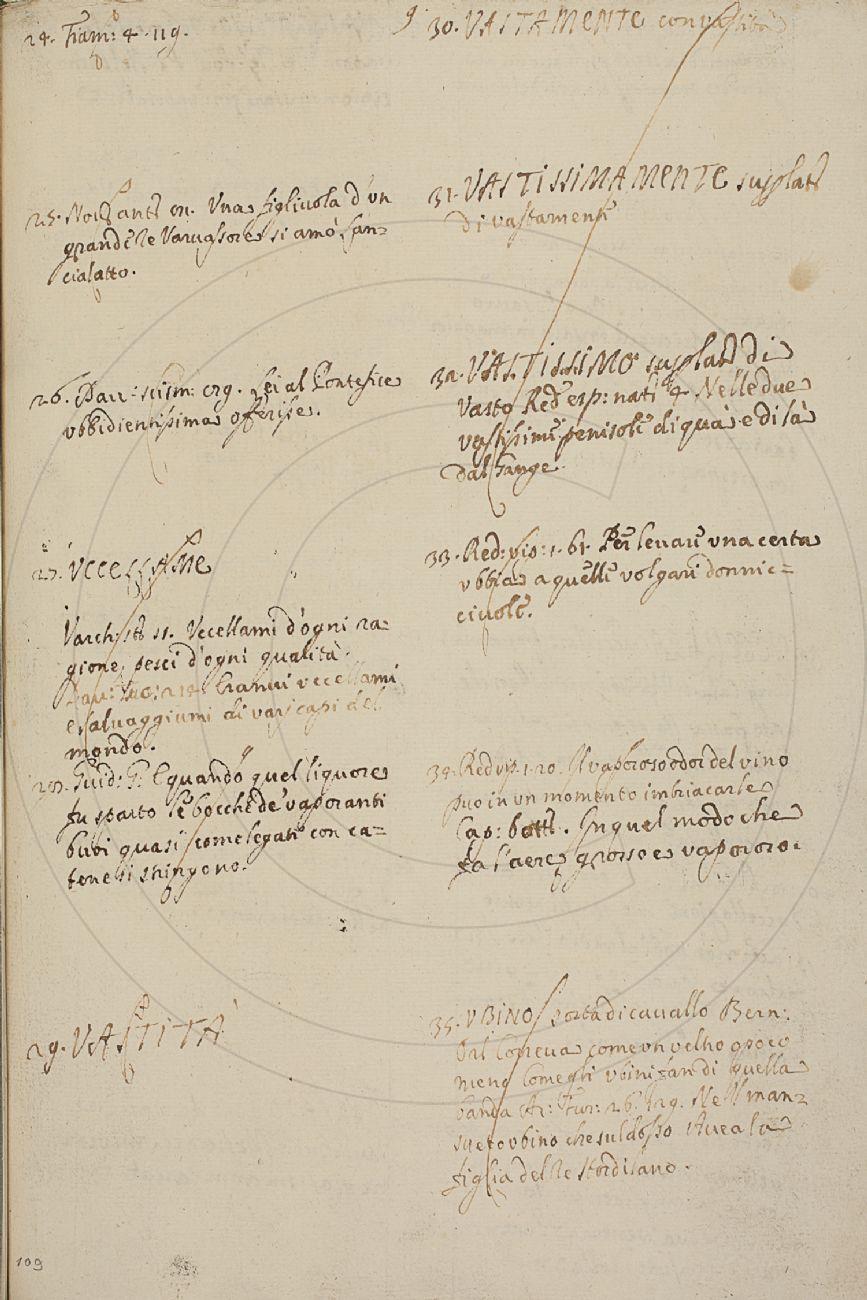 24. Fiam: 4. 119.
25. en. Una figliuola d'un
grande Re Varvassore si amò San-
cialatto.
26. Dav: scism: erg. Lei al Pontefice
ubbidientissima offerisse.
27. UCCELLAME
Varch: st: 11. Vecellami d'ogni ra-
gione, pesci d'ogni qualità.
Eranvi vecellami
e salvaggiumi di varj capi del
mondo.
28. Guid: G: E quando quel liquore
fu sparto le bocche de' vaporanti
buoi quasi come legati con ca-
tene si stringono.
29. VASTITÀ
109
9
30. VASTAMENTE con vastità
31. VASTISSIMAMENTE suplati
di vastamente
32. VASTISSIMO suplati di
Vasto Red: esp: nat: 4 Nelle due
vastissime penisole di qua, e di là
dal Gange.
33. Red: vip: 1. 61. Per levare una certa
ubbia a quelle volgari donnic-
ciuole.
34. Red vip. 1. 20. Il vaporoso odor del vino
puo in un momento imbriacarle
Cap: bott: . In quel modo che
fa l'aere grosso e vaporoso.
35. UBINO sorta di cavallo Bern:
come un veltro o poco
meno Come gli ubini fan di quella
banda Ar: Fur: Nell man-
sueto ubino che sul dosso Avea la
figlia del Re Stordilano.